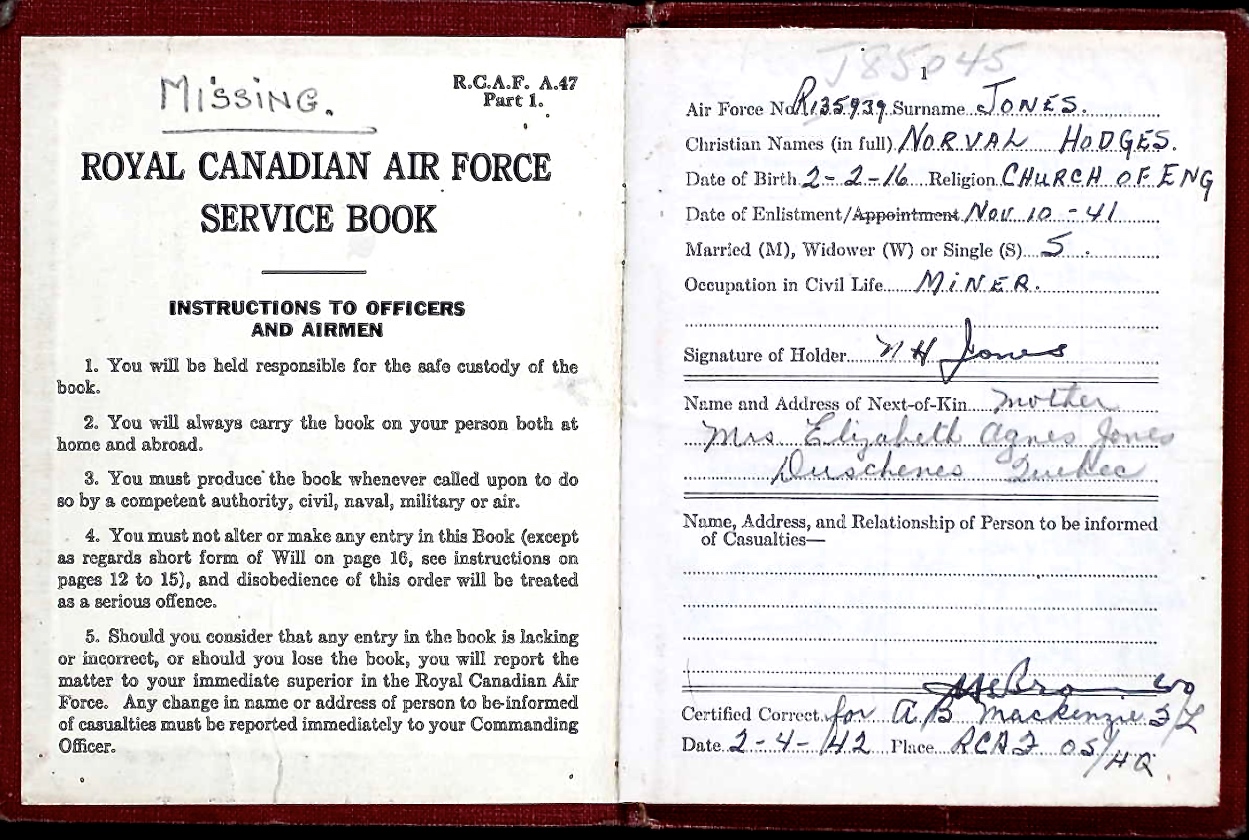 MISSING.
R.C.A.F. A.47
Part 1.
ROYAL CANADIAN AIR FORCE
SERVICE BOOK
INSTRUCTIONS TO OFFICERS
AND AIRMEN
1. You will be held responsible for the safe custody of the
book.
2. You will always carry the book on your person both at
home and abroad.
3. You must produce the book whenever called upon to do
so by a competent authority, civil, naval, military or air.
4. You must not alter or make any entry in this Book (except
as regards short form of Will on page 16, see instructions on
pages 12 to 15), and disobedience of this order will be treated
as a serious offence.
5. Should you consider that any entry in the book is lacking
or incorrect, or should you lose the book, you will report the
matter to your immediate superior in the Royal Canadian Air
Force. Any change in name or address of person to be informed
of casualties must be reported immediately to your Commanding
Officer.
J85045
1
Air Force No. R135939 Surname JONES.
Christian Names (in full) NORVAL HODGES.
Date of Birth 2-2-16 Religion CHURCH OF ENG
Date of Enlistment/Appointment Nov 10 - 41
Married (M), Widower (W) or Single (S) S.
Occupation in Civil Life MINER.
Signature of Holder N H Jones
Name and Address of Next-of-Kin Mother
Mrs Elizabeth Agnes Jones
Duschenes Quebec
Name, Address, and Relationship of Person to be informed
of Casualties—
Certified Correct for A B Mackenzie F/L
Date 2-4-42 Place RCAF OS/HQ